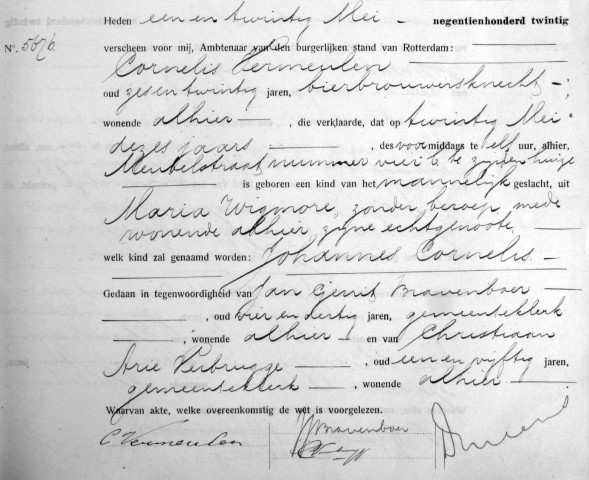 Heden een en twintig Mei - negentienhonderd twintig
No. 5676 verscheen voor mij, Ambtenaar van den burgerlijken stand van Rotterdam:
Cornelis Vermeulen
oud zes en twintig jaren, bierbrouwersknecht -;
wonende alhier -, die verklaarde, dat op twintig Mei
dezes jaars -, des voormiddags te elf uur, alhier,
Meubelstraat nummer vier te te zijnen huize
is geboren een kind van het mannelijk geslacht, uit
Maria Wigmore, zonder beroep, mede
wonende alhier, zijne echtgenoote,
welk kind zal genaamd worden: Johannes Cornelis -
Gedaan in tegenwoordigheid van Jan Gerrit Bravenboer
, oud vier en dertig jaren, gemeenteklerk
, wonende alhier - en van Christiaan
Arie Verbrugge -, oud een en vijftig jaren,
gemeenteklerk -, wonende alhier
Waarvan akte, welke overeenkomstig de wet is voorgelezen.
C Vermeulen Bravenboer